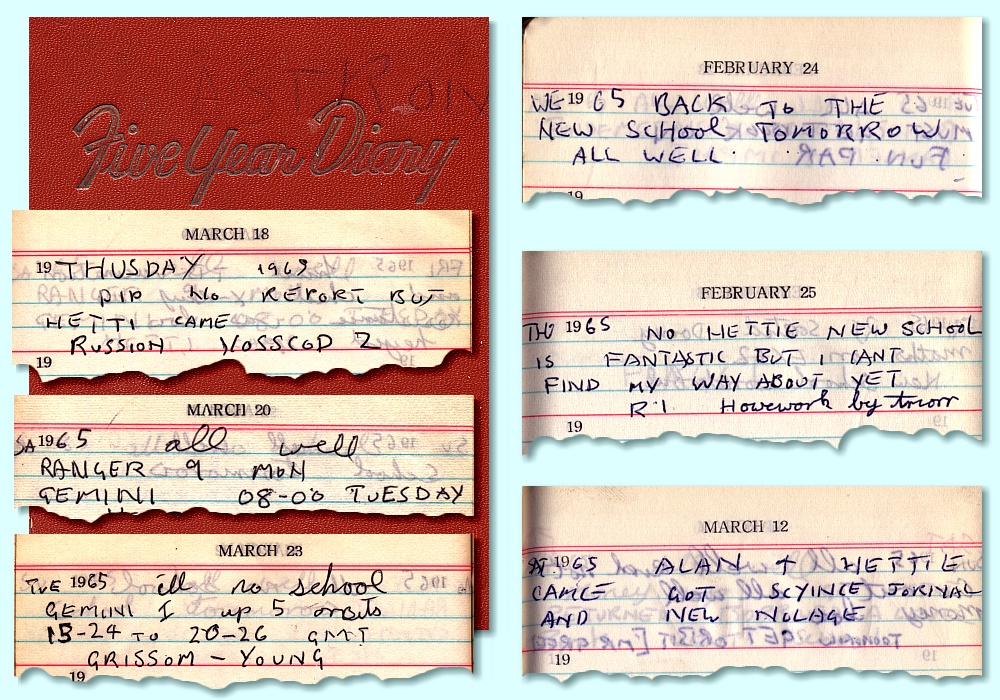 ASTRON
Five Year Diary
MARCH 18
19 THUSDAY 1965
DID No REPORT BUT
HETTI CAME
RUSSION VOSSCOD 2
19
MARCH 20
SA 1965 all well
RANGER 9 MON
GEMINI 08-00 TUESDAY
MARCH 23
TUE 1965 ill no school
GEMINI I up 5 orbits
13-24 TO 20-26 GMT
GRISSOM - YOUNG
19
FEBRUARY 24
WE 1965 BACK To THE
NEW SCHOOL TOMORROW
ALL WELL
19
FEBRUARY 25
THU 1965 NO HETTIE NEW SCHOOL
IS FANTASTIC BUT I CANT
FIND MY WAY ABOUT YET
R.I. Howework by
19
MARCH 12
1965 ALAN + HETTIE
CAME GOT SCYINCE JORNAL
AND NEW NOLAGE
19